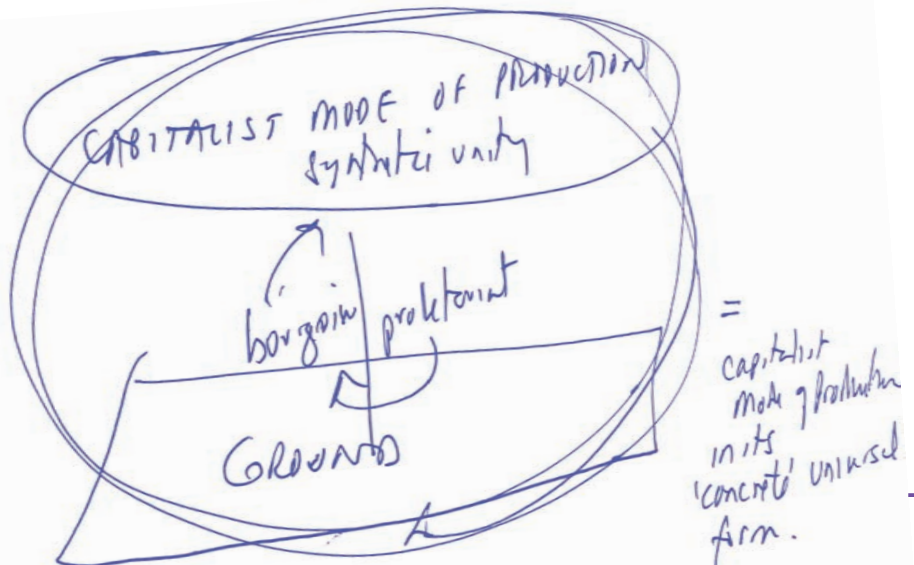 CAPITALIST MODE OF PRODUCTION
synthetic unity
bourgeoisie proletariat
GROUND
=
capitalist
mode of production
in its
'concrete' universal
form.